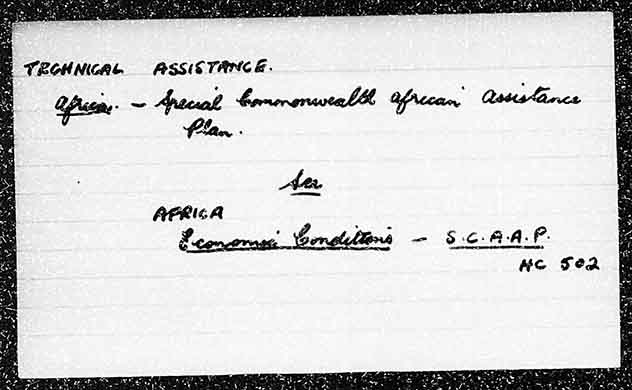 TECHNICAL ASSISTANCE.
Africa. - Special Commonwealth African Assistance
Plan.
See
AFRICA
Economic Conditions - S.C.A.A.P.
HC 502